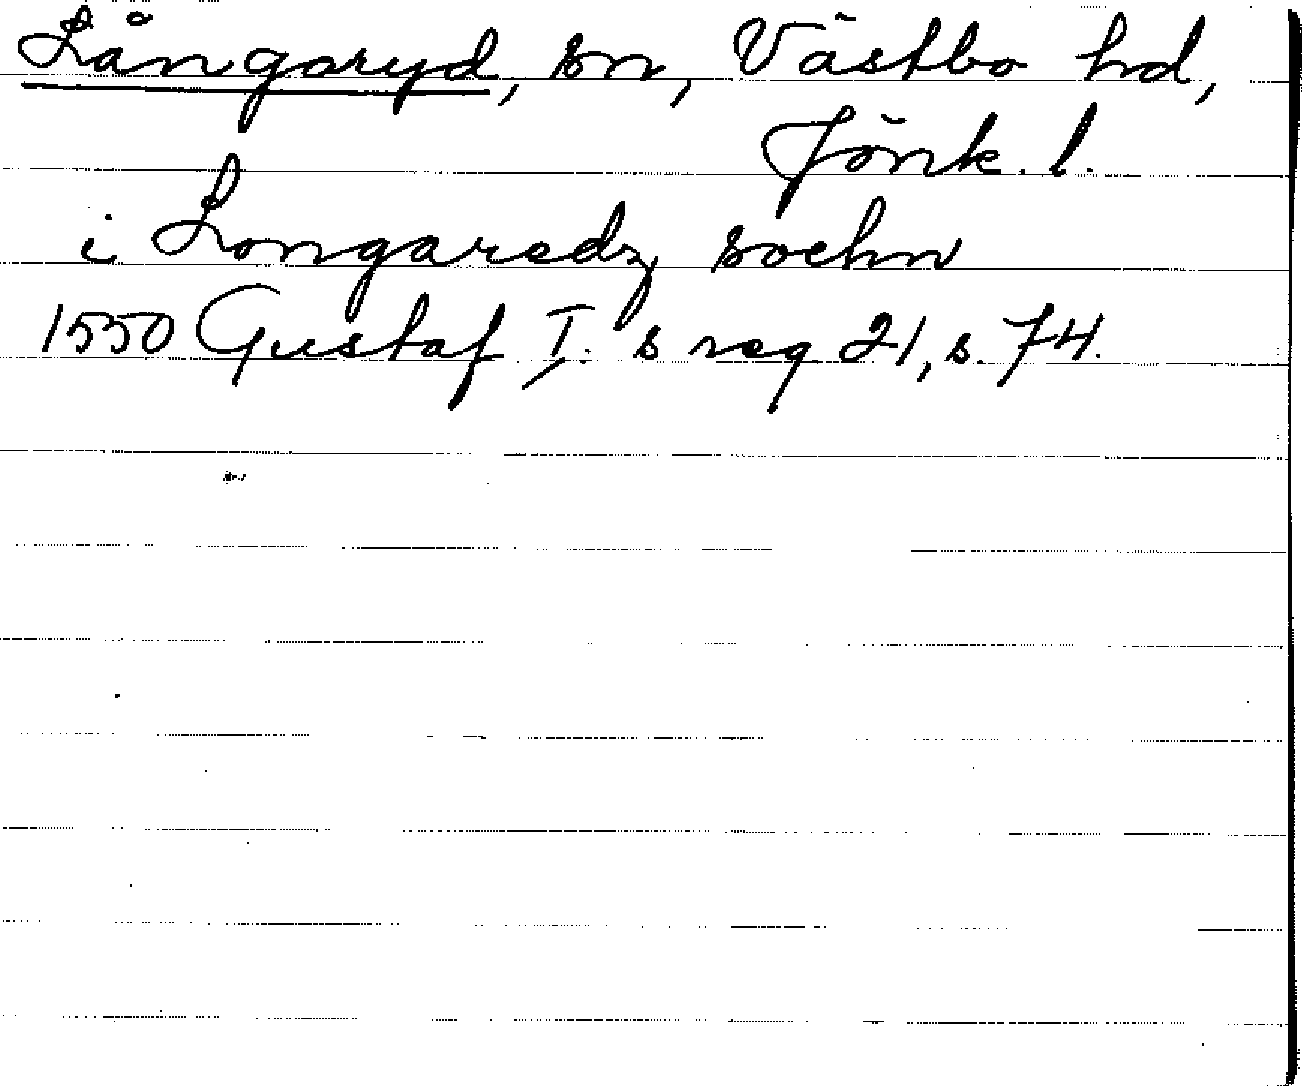 Långaryd, sn, Västbo hd,
Jönk. l.
i Longaredz sochn
1550 Gustaf I. s reg 21, s. 74.